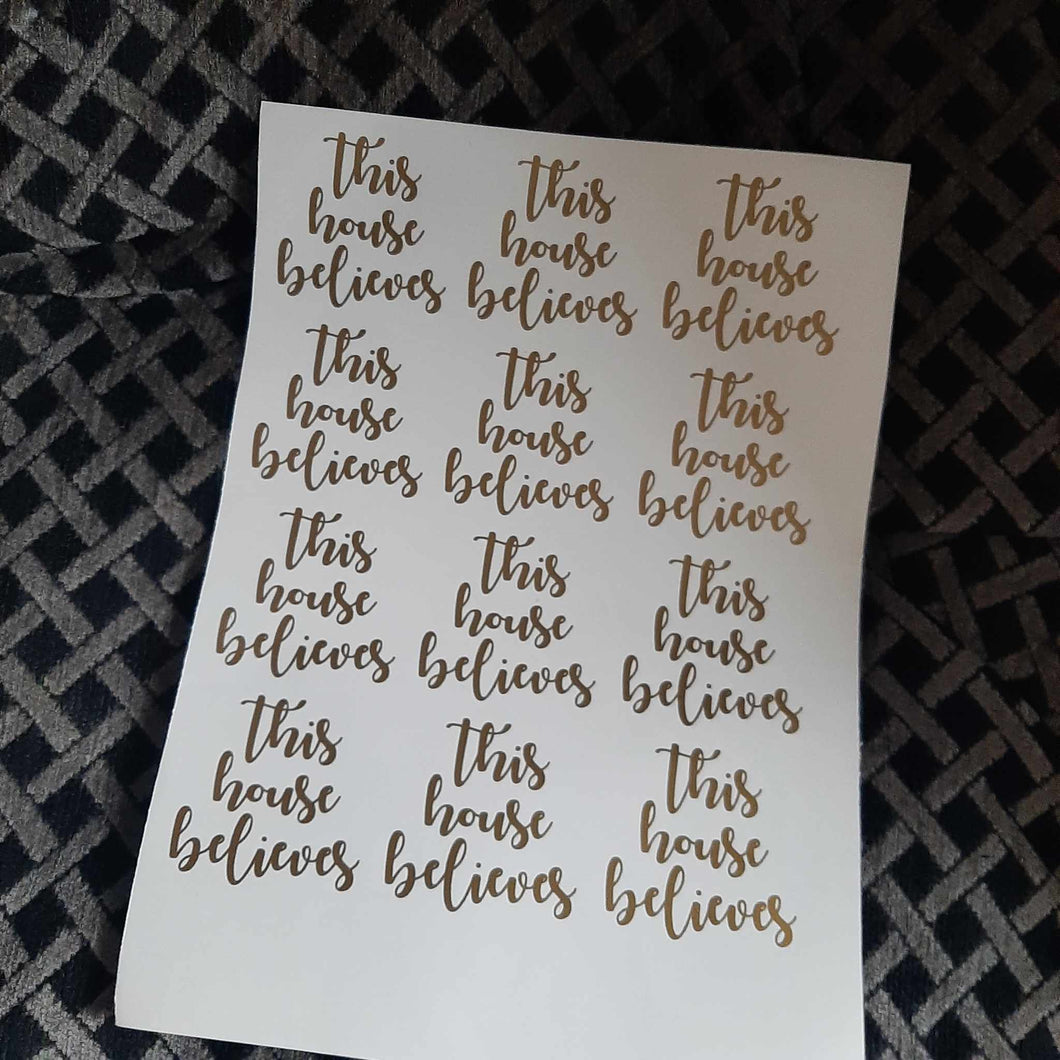 this
house
believes
this
house
believes
this
house
believes
this
house
believes
this
house
believes
this
house
believes
this
house
believes
this
house
believes
this
house
believes
this
house
believes
this
house
believes
this
house
believes